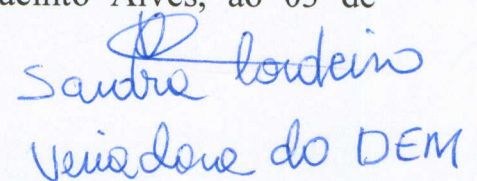 Alves, ao 03 de
Sandra Cordeiro
Vereadora do DEM